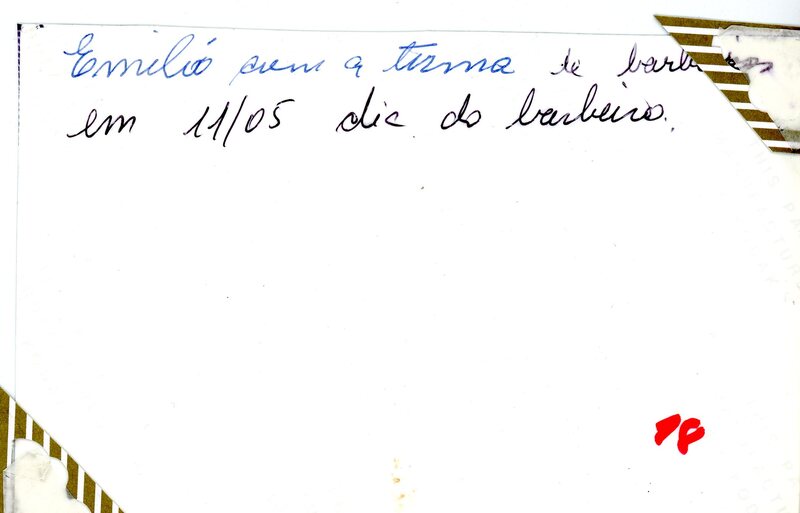 Emilió com a turma de barbeiros
em 11/05 dia do barbeiro.
18